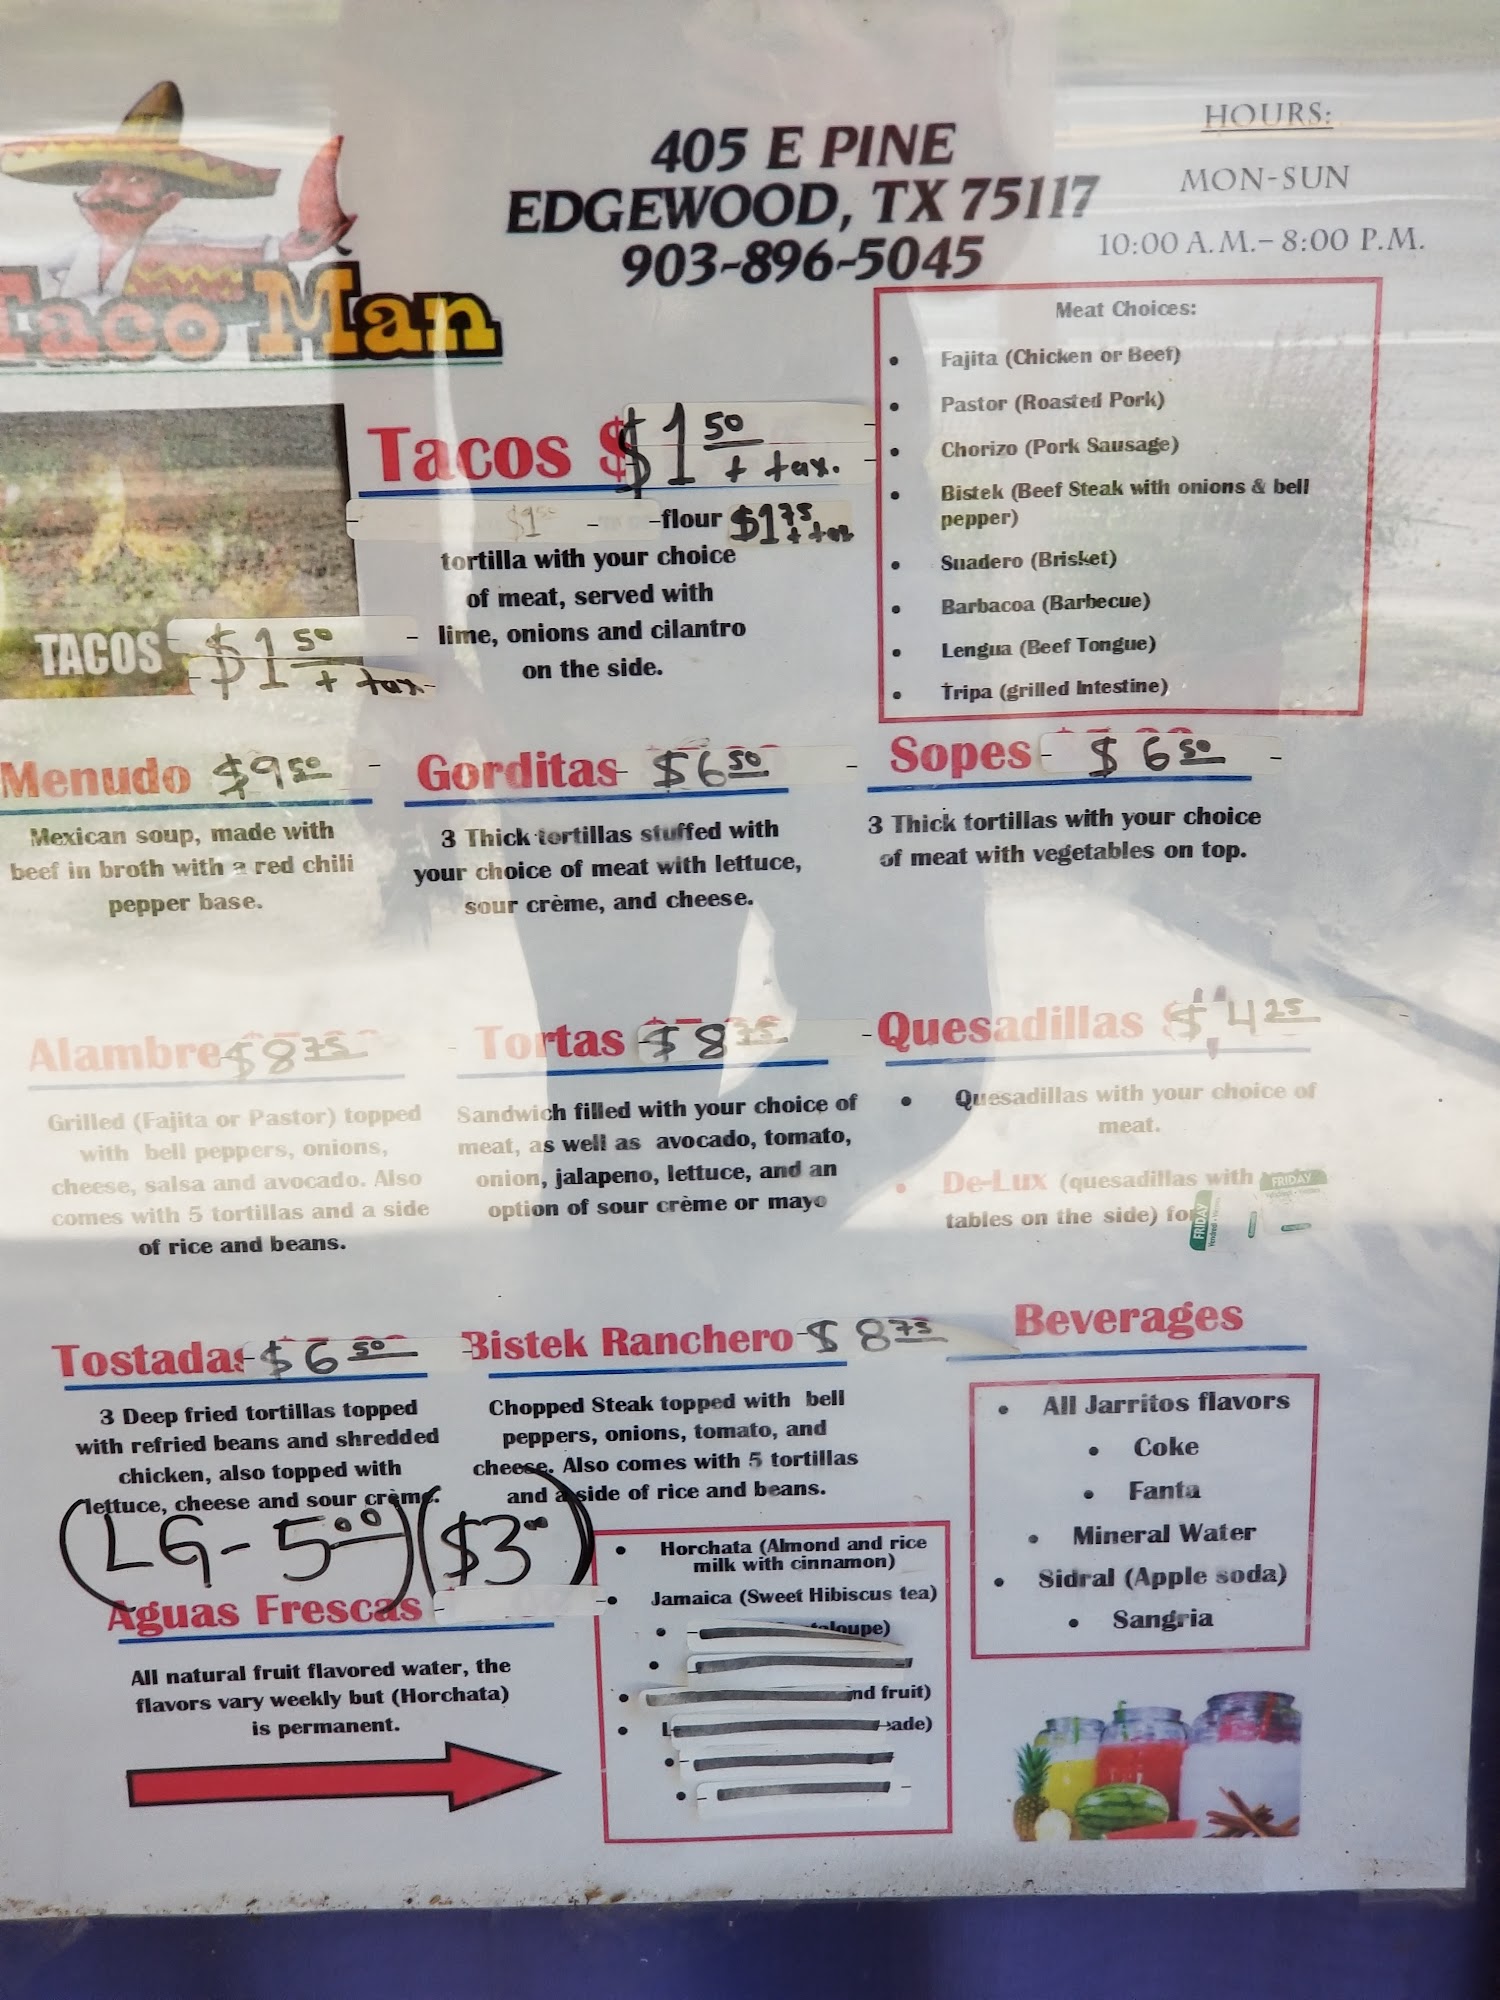 Taco Man
405 E PINE
EDGEWOOD, TX 75117
903-896-5045
HOURS:
MON-SUN
10:00 A.M.– 8:00 P.M.
Meat Choices:
• Fajita (Chicken or Beef)
• Pastor (Roasted Pork)
• Chorizo (Pork Sausage)
• Bistek (Beef Steak with onions & bell
pepper)
• Suadero (Brisket)
• Barbacoa (Barbecue)
• Lengua (Beef Tongue)
• Tripa (grilled Intestine)
Tacos $1 50 + tax.
flour $1 75 + tax
tortilla with your choice
of meat, served with
lime, onions and cilantro
on the side.
TACOS $1 50 + tax
Menudo $9 50
Mexican soup, made with
beef in broth with a red chili
pepper base.
Gorditas $6 50
3 Thick tortillas stuffed with
your choice of meat with lettuce,
sour crème, and cheese.
Sopes $6 50
3 Thick tortillas with your choice
of meat with vegetables on top.
Alambre $8 75
Grilled (Fajita or Pastor) topped
with bell peppers, onions,
cheese, salsa and avocado. Also
comes with 5 tortillas and a side
of rice and beans.
Tortas $8 75
Sandwich filled with your choice of
meat, as well as avocado, tomato,
onion, jalapeno, lettuce, and an
option of sour crème or mayo
Quesadillas $4 25
• Quesadillas with your choice of
meat.
• De-Lux (quesadillas with
tables on the side) for
FRIDAY
FRIDAY
Tostadas $6 50
3 Deep fried tortillas topped
with refried beans and shredded
chicken, also topped with
lettuce, cheese and sour crème.
Bistek Ranchero $8 75
Chopped Steak topped with bell
peppers, onions, tomato, and
cheese. Also comes with 5 tortillas
and a side of rice and beans.
Beverages
• All Jarritos flavors
• Coke
• Fanta
• Mineral Water
• Sidral (Apple soda)
• Sangria
(LG - 5 00) ($3 00)
Aguas Frescas
All natural fruit flavored water, the
flavors vary weekly but (Horchata)
is permanent.
• Horchata (Almond and rice
milk with cinnamon)
• Jamaica (Sweet Hibiscus tea)